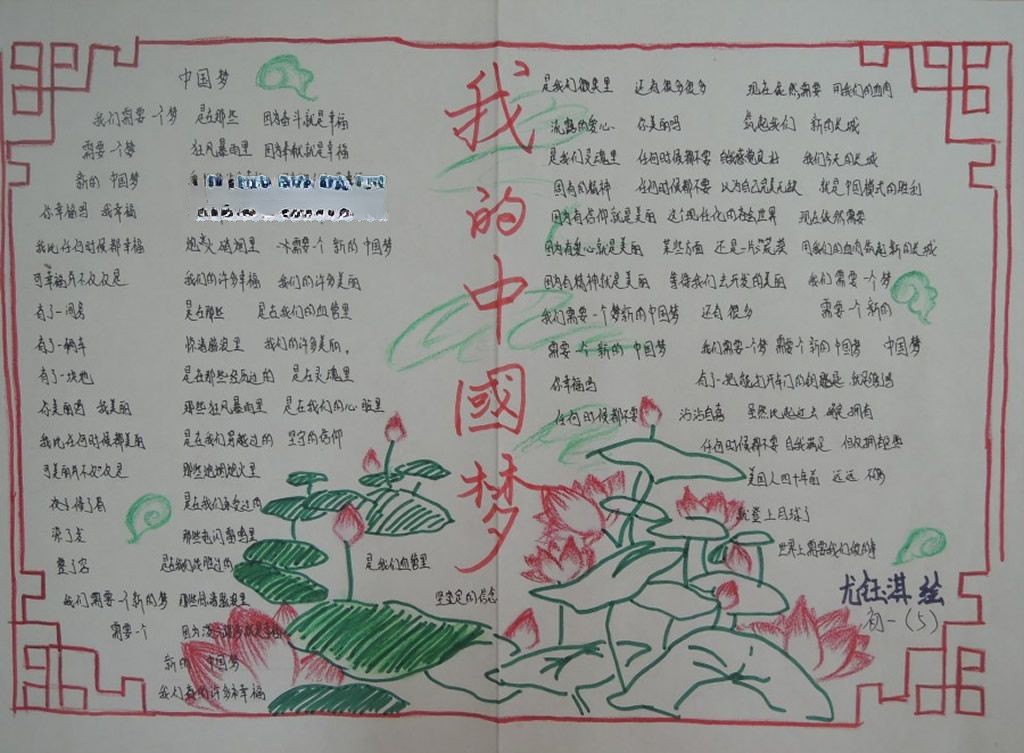 中国梦
我们需要一个梦 是在那些 因为奋斗就是幸福
需要一个梦 狂风暴雨里 因为奉献就是幸福
新的 中国梦
你幸福吗 我幸福
我比任何时候都幸福 炮火硝烟里 需要一个新的中国梦
可幸福并不仅仅是 我们的许多幸福 我们的许多美丽
有了一间房 是在那些 是在我们的血管里
有了一辆车 惊涛骇浪里 我们的许多美丽
有了一块地 是在那些经历过的 是在灵魂里
你美丽吗 我美丽 那些狂风暴雨里 是在我们的心脏里
我比任何时候都美丽 是在我们穿越过的 坚守的信仰
可美丽并不仅仅是 那些炮烟炮火里
是在我们承受过的
染了发 那些电闪雷鸣里
整了容 是在我们 是我们血管里
我们需要一个新的梦 那些惊涛骇浪里 坚定的信念
需要一个
新的 中国梦
我们有的许多幸福
我的中國梦
是我们微笑里 还有很多很多 现在依然需要 用我们的血肉
流露的爱心 你美丽吗 筑起我们 新的长城
是我们灵魂里 任何时候都不要 自我感觉良好 我们今天的长城
固有的精神 任何时候都不要 以为自己完美无缺 就是中国模式的胜利
因为有信仰就是美丽 这个现代化的 世界 现在依然需要
因为有爱心就是美丽 某些方面 还是一片荒漠 用我们的血肉筑起新的长城
因为有精神就是美丽 等待我们去开发的美丽 我们需要一个梦
我们需要一个梦新的中国梦 还有很多 需要一个新的
需要一个新的 中国梦 我们需要一个梦 需要一个新的中国梦 中国梦
你幸福吗 有了一把能打开车门的钥匙
任何时候都不要 沾沾自喜 虽然比起过去 拥有
任何时候都不要 自我满足
美国人四十年前 远远 不够
就登上月球了
世界上需要我们做的事
尤钰淇 绘
初一（5）